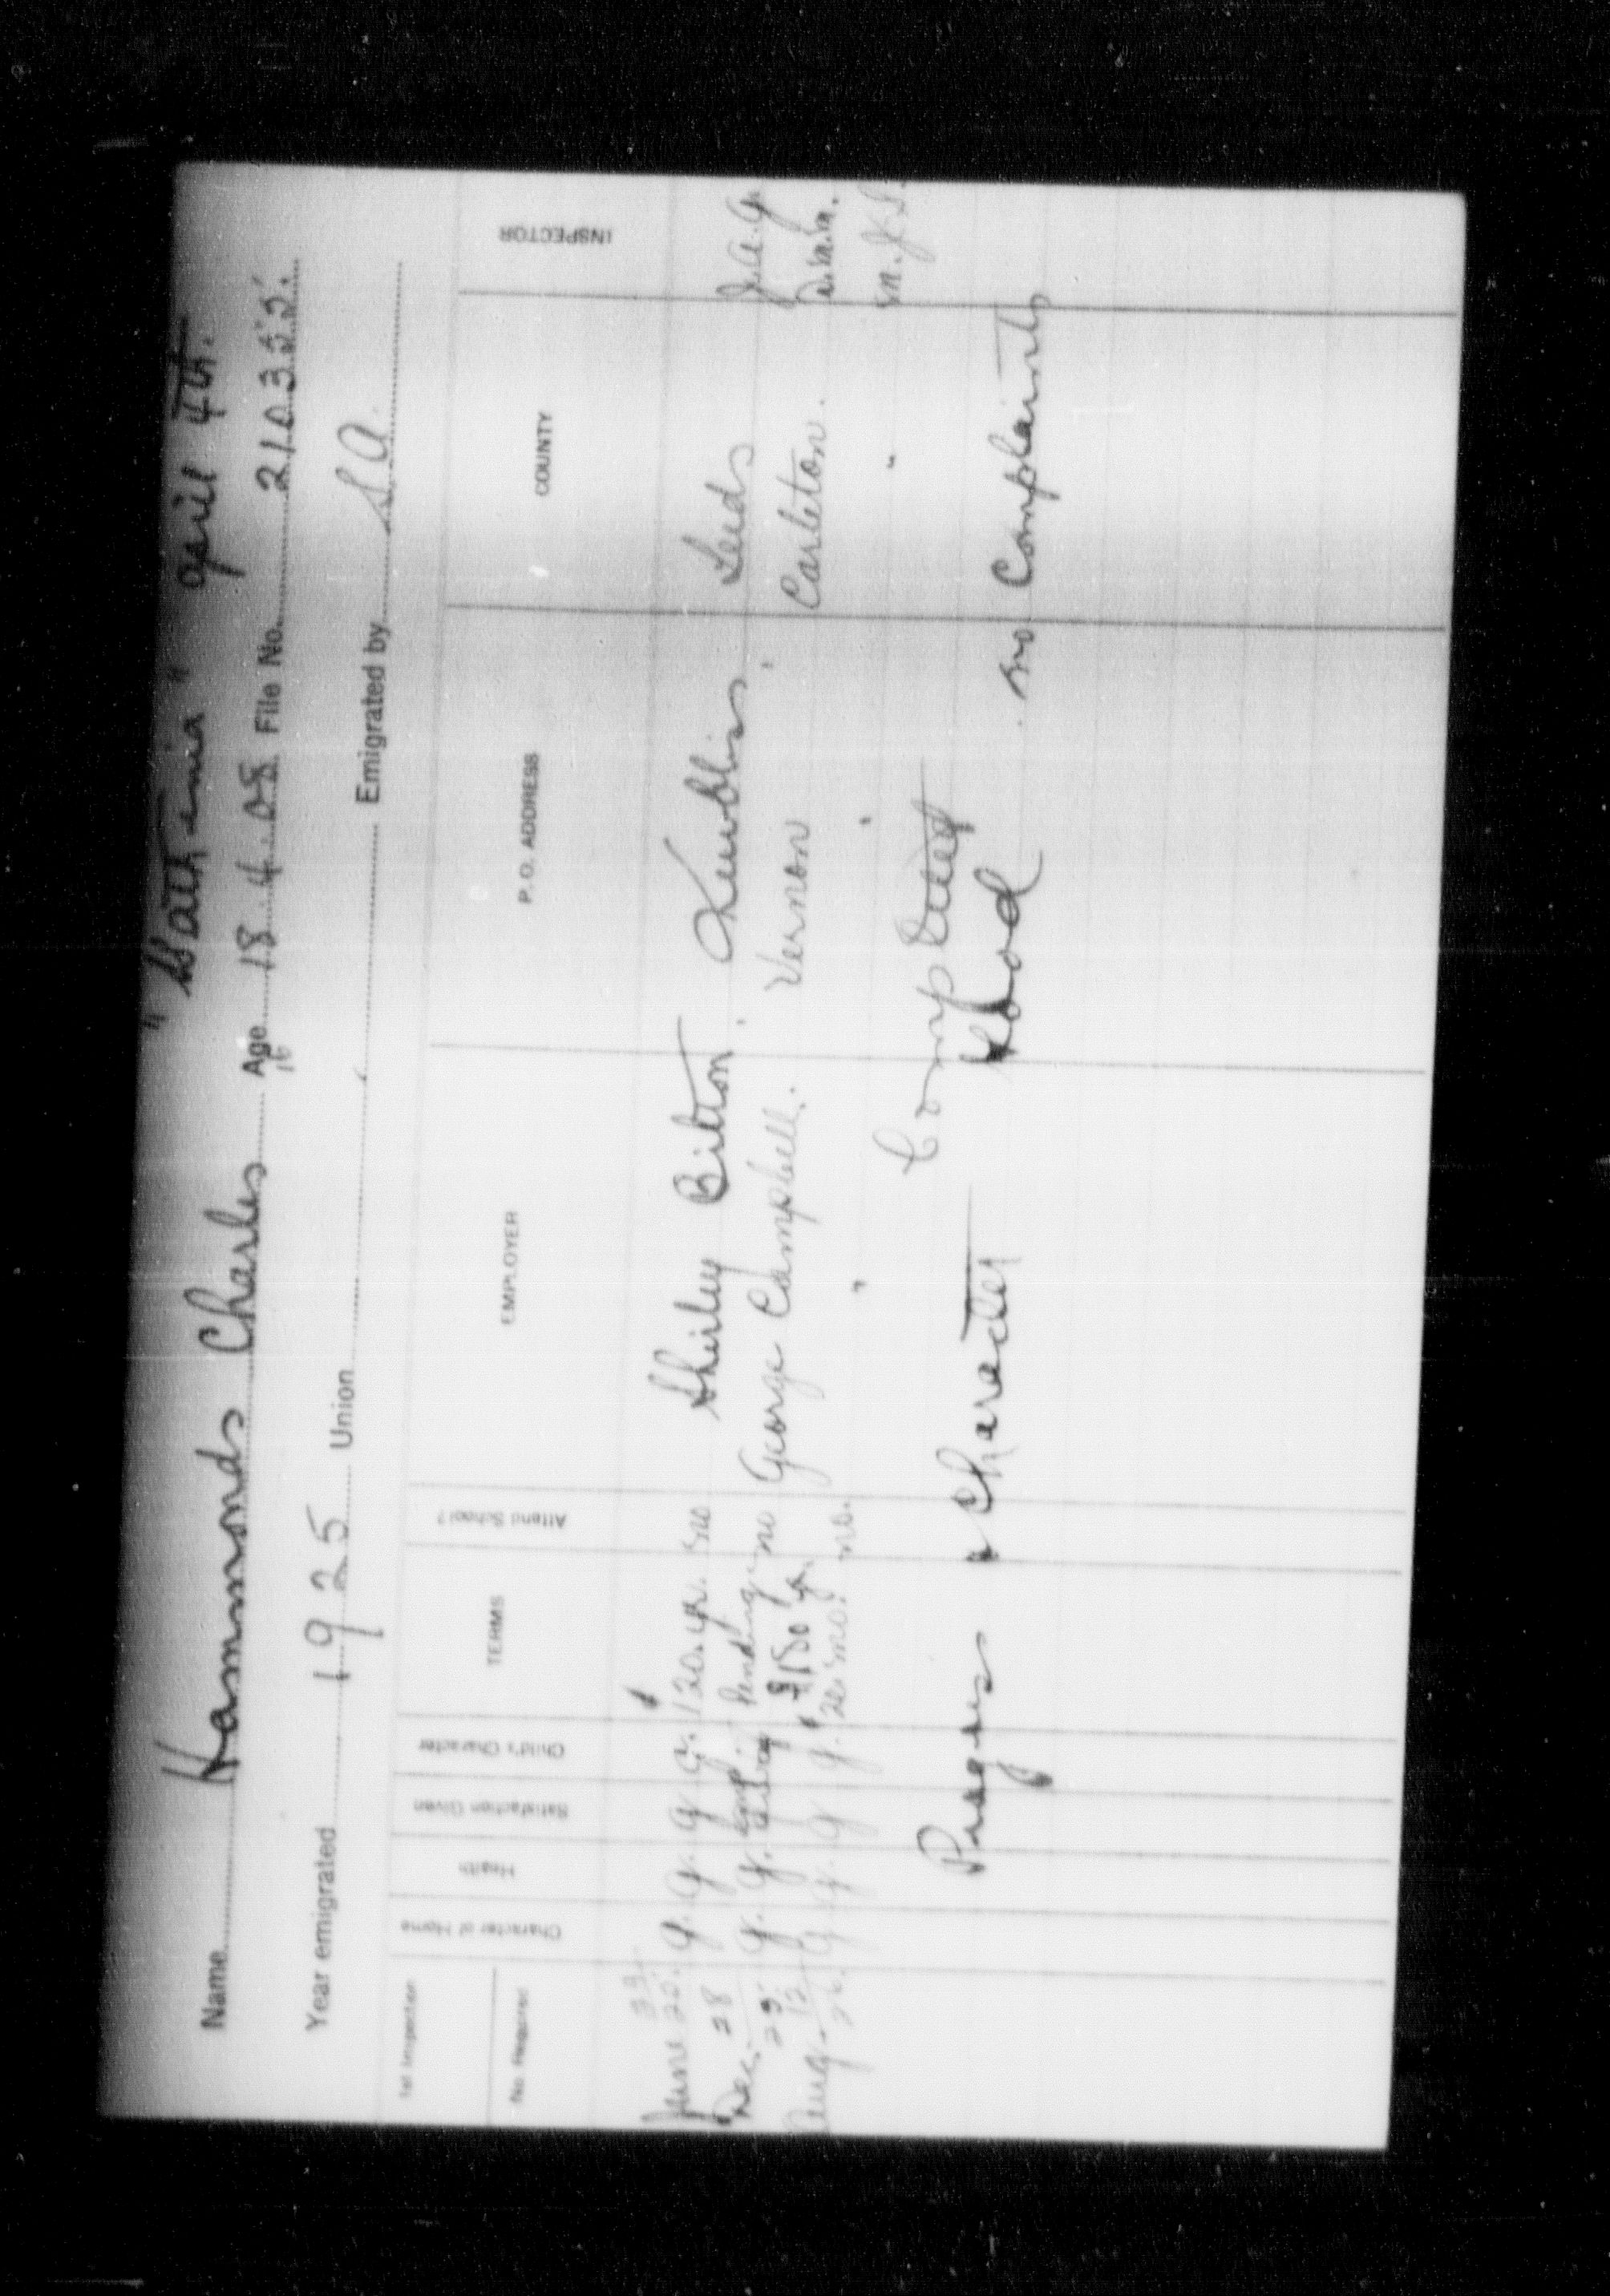 " " April 4th.
Name Hammonds Charles Age 18.4.08 File No. 210355.
16
Year emigrated 1925 Union Emigrated by S.A.
1st Inspection No. Required Character of Home Health Satisfaction Given Child's Character TERMS Attend School? EMPLOYER P.O. ADDRESS COUNTY INSPECTOR
June g. g g g. $120. yr. no Shirley Bilton. Leeds
Dec. 28 g. g. Pending no George Campbell. Vernon Carleton.
29. $150 yr.
Aug. 12 g g. g g. 20 mo. no. " " "
Completed
Progress & Character Good. no Complaints